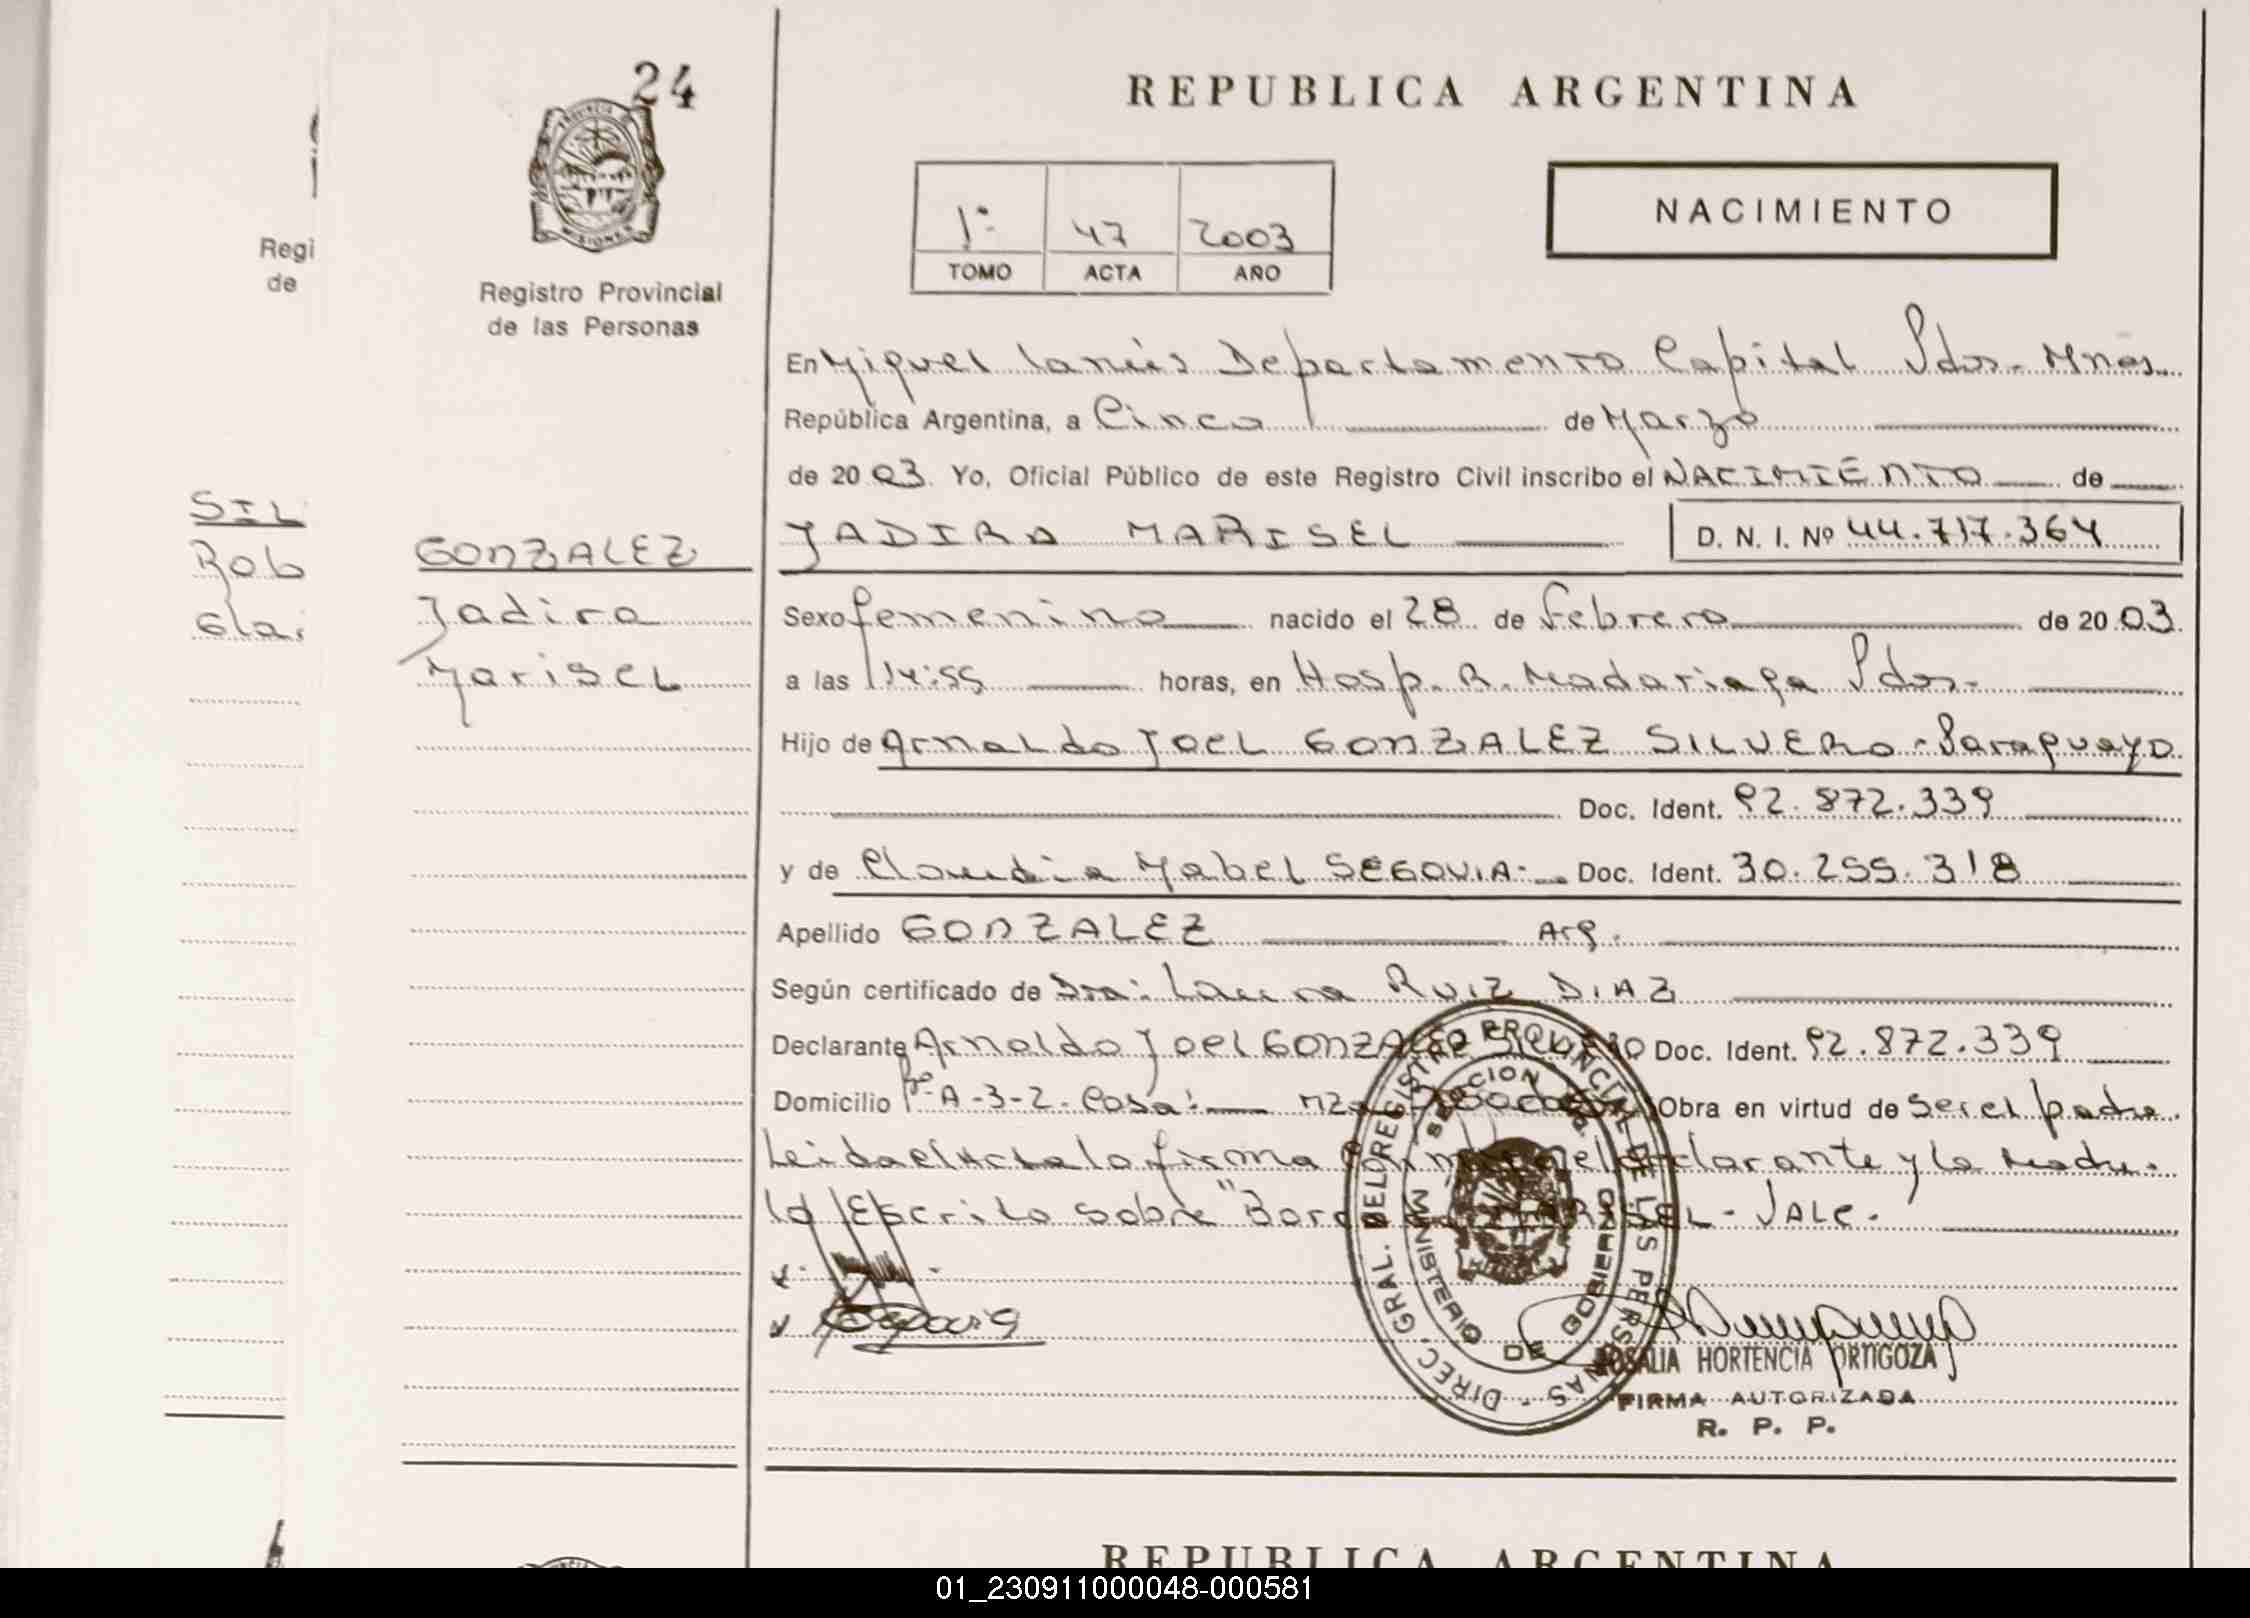 24
PROVINCIA D
MISIONES
Registro Provincial
de las Personas
Regi
de
SIL
Rob
Gla
GONZALEZ
Jadira
Marisel
REPUBLICA ARGENTINA
1º 47 2003
TOMO ACTA AÑO
NACIMIENTO
En Miguel Lanús Departamento Capital Pdos. Mnes.
República Argentina, a Cinco de Marzo
de 2003 Yo, Oficial Público de este Registro Civil inscribo el NACIMIENTO de
JADIRA MARISEL D. N. I. Nº 44.717.364
Sexo femenino nacido el 28 de febrero de 2003
a las 14:55 horas, en Hosp. R. Madariaga Pdos.
Hijo de Arnaldo Joel GONZALEZ SILVERO - Paraguayo
Doc. Ident. 92.872.339
y de Claudia Mabel SEGOVIA.- Doc. Ident. 30.255.318
Apellido GONZALEZ Arg.
Según certificado de Dra: Laura RUIZ DIAZ
Declarante Arnaldo Joel GONZALEZ SILVERO Doc. Ident. 92.872.339
Domicilio A-3-2- Casa: Mza Obra en virtud de ser el padre.
Leida el Acta la firma el declarante y la Madre.
Escrito sobre "Borrado MARISEL - Vale.
DIREC. GRAL. DEL REGISTRO PROVINCIAL DE LAS PERSONAS
MINISTERIO DE GOBIERNO
ROSALIA HORTENCIA ORTIGOZA
FIRMA AUTORIZADA
R. P. P.
REPUBLICA ARGENTINA
01_230911000048-000581